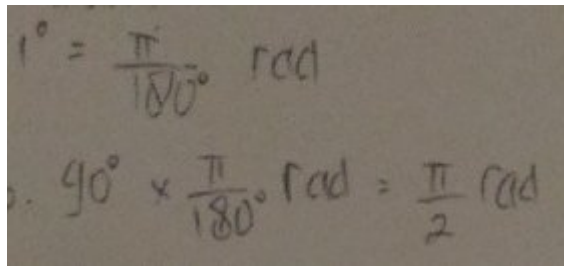 1° = π/180° rad
. 90° × π/180° rad = π/2 rad